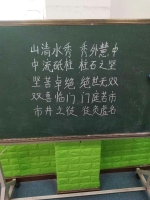 山清水秀 秀外慧中
中流砥柱 柱石之坚
坚苦卓绝 绝世无双
双喜临门 门庭若市
市井之徒 徒负虚名